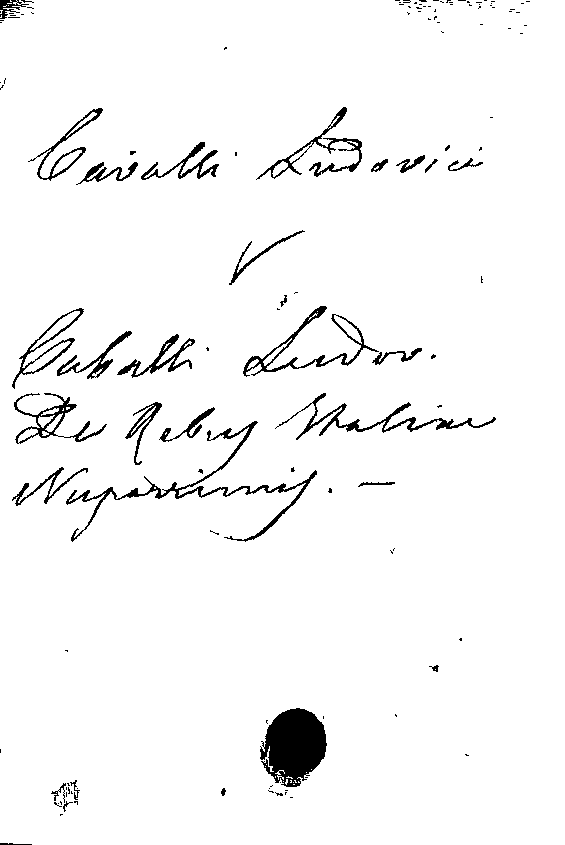 Cavalli Ludovici
V
Caballi Ludov.
De Rebus Italiae
Nuperrimis. —